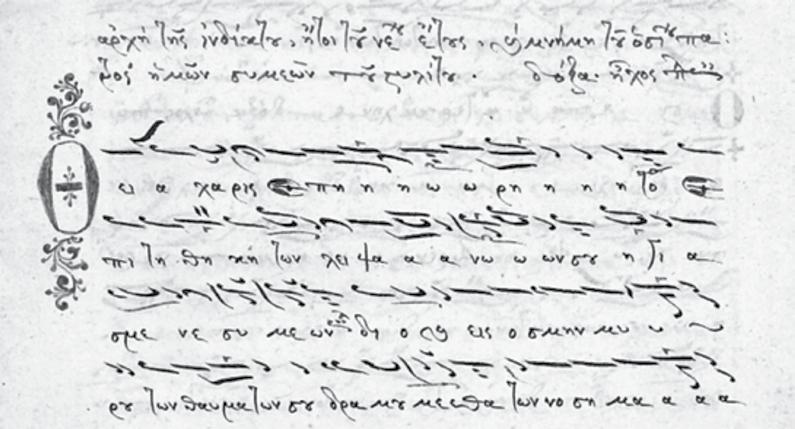 ἀρχὴ τῆς ἰνδίκτου, ἤτοι τοῦ νέου ἔτους. καὶ μνήμη τοῦ ὁσίου πα:
τρὸς ἡμῶν συμεὼν τοῦ στυλίτου. δόξα. ἦχος
Θ ει α χαρις ε πη η η ω ω ρη η η η το ε
πι τη θη κη των λειψα α α νω ω ων σου η γι α
σμε νε συ με ων δι ο και εις ο σμην μυ υ
ρου των θαυματων σου δρα μου με ε θα των νο ση μα α α α